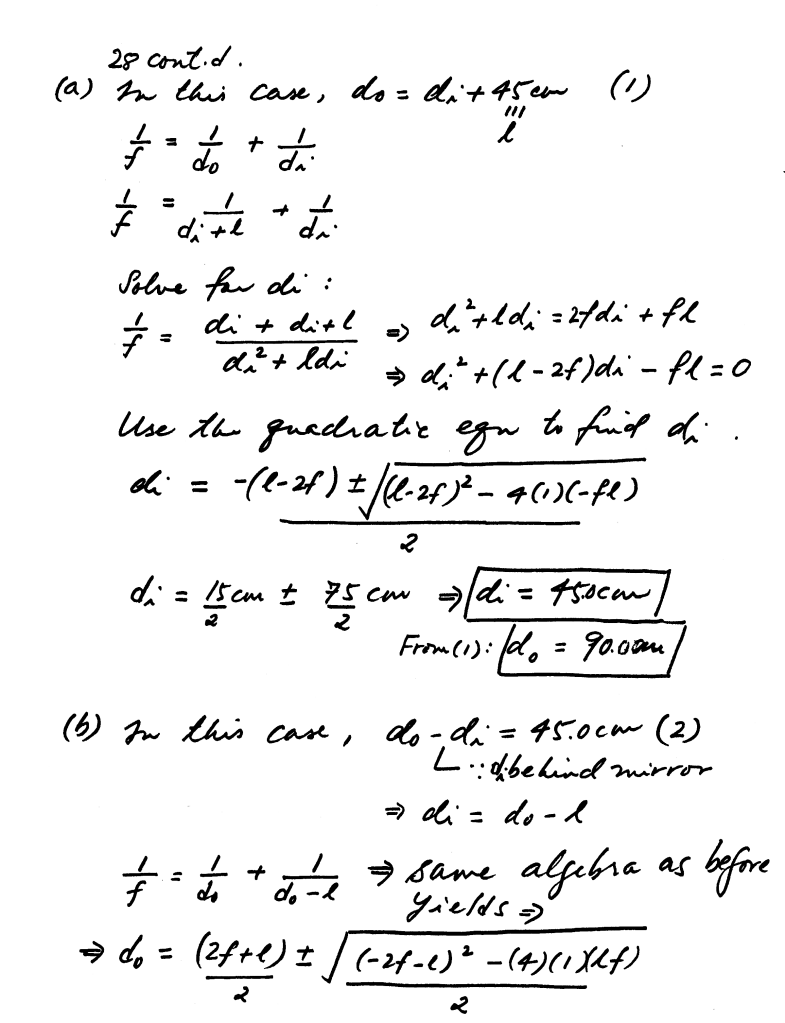 28 cont.d.
(a) In this case, do = di + 45cm (1)
||| l
1/f = 1/do + 1/di
1/f = 1/(di + l) + 1/di
Solve for di :
1/f = (di + di + l)/(di² + ldi) ⇒ di² + ldi = 2fdi + fl
⇒ di² + (l - 2f)di - fl = 0
Use the quadratic eqn to find di.
di = (-(l-2f) ± √((l-2f)² - 4(1)(-fl)))/2
di = 15cm/2 ± 75/2 cm ⇒ di = 45.0cm
From (1): do = 90.0cm
(b) In this case, do - di = 45.0cm (2)
∵ di behind mirror
⇒ di = do - l
1/f = 1/do + 1/(do - l) ⇒ same algebra as before
yields ⇒
⇒ do = (2f+l)/2 ± √((-2f-l)² - (4)(1)(lf))/2